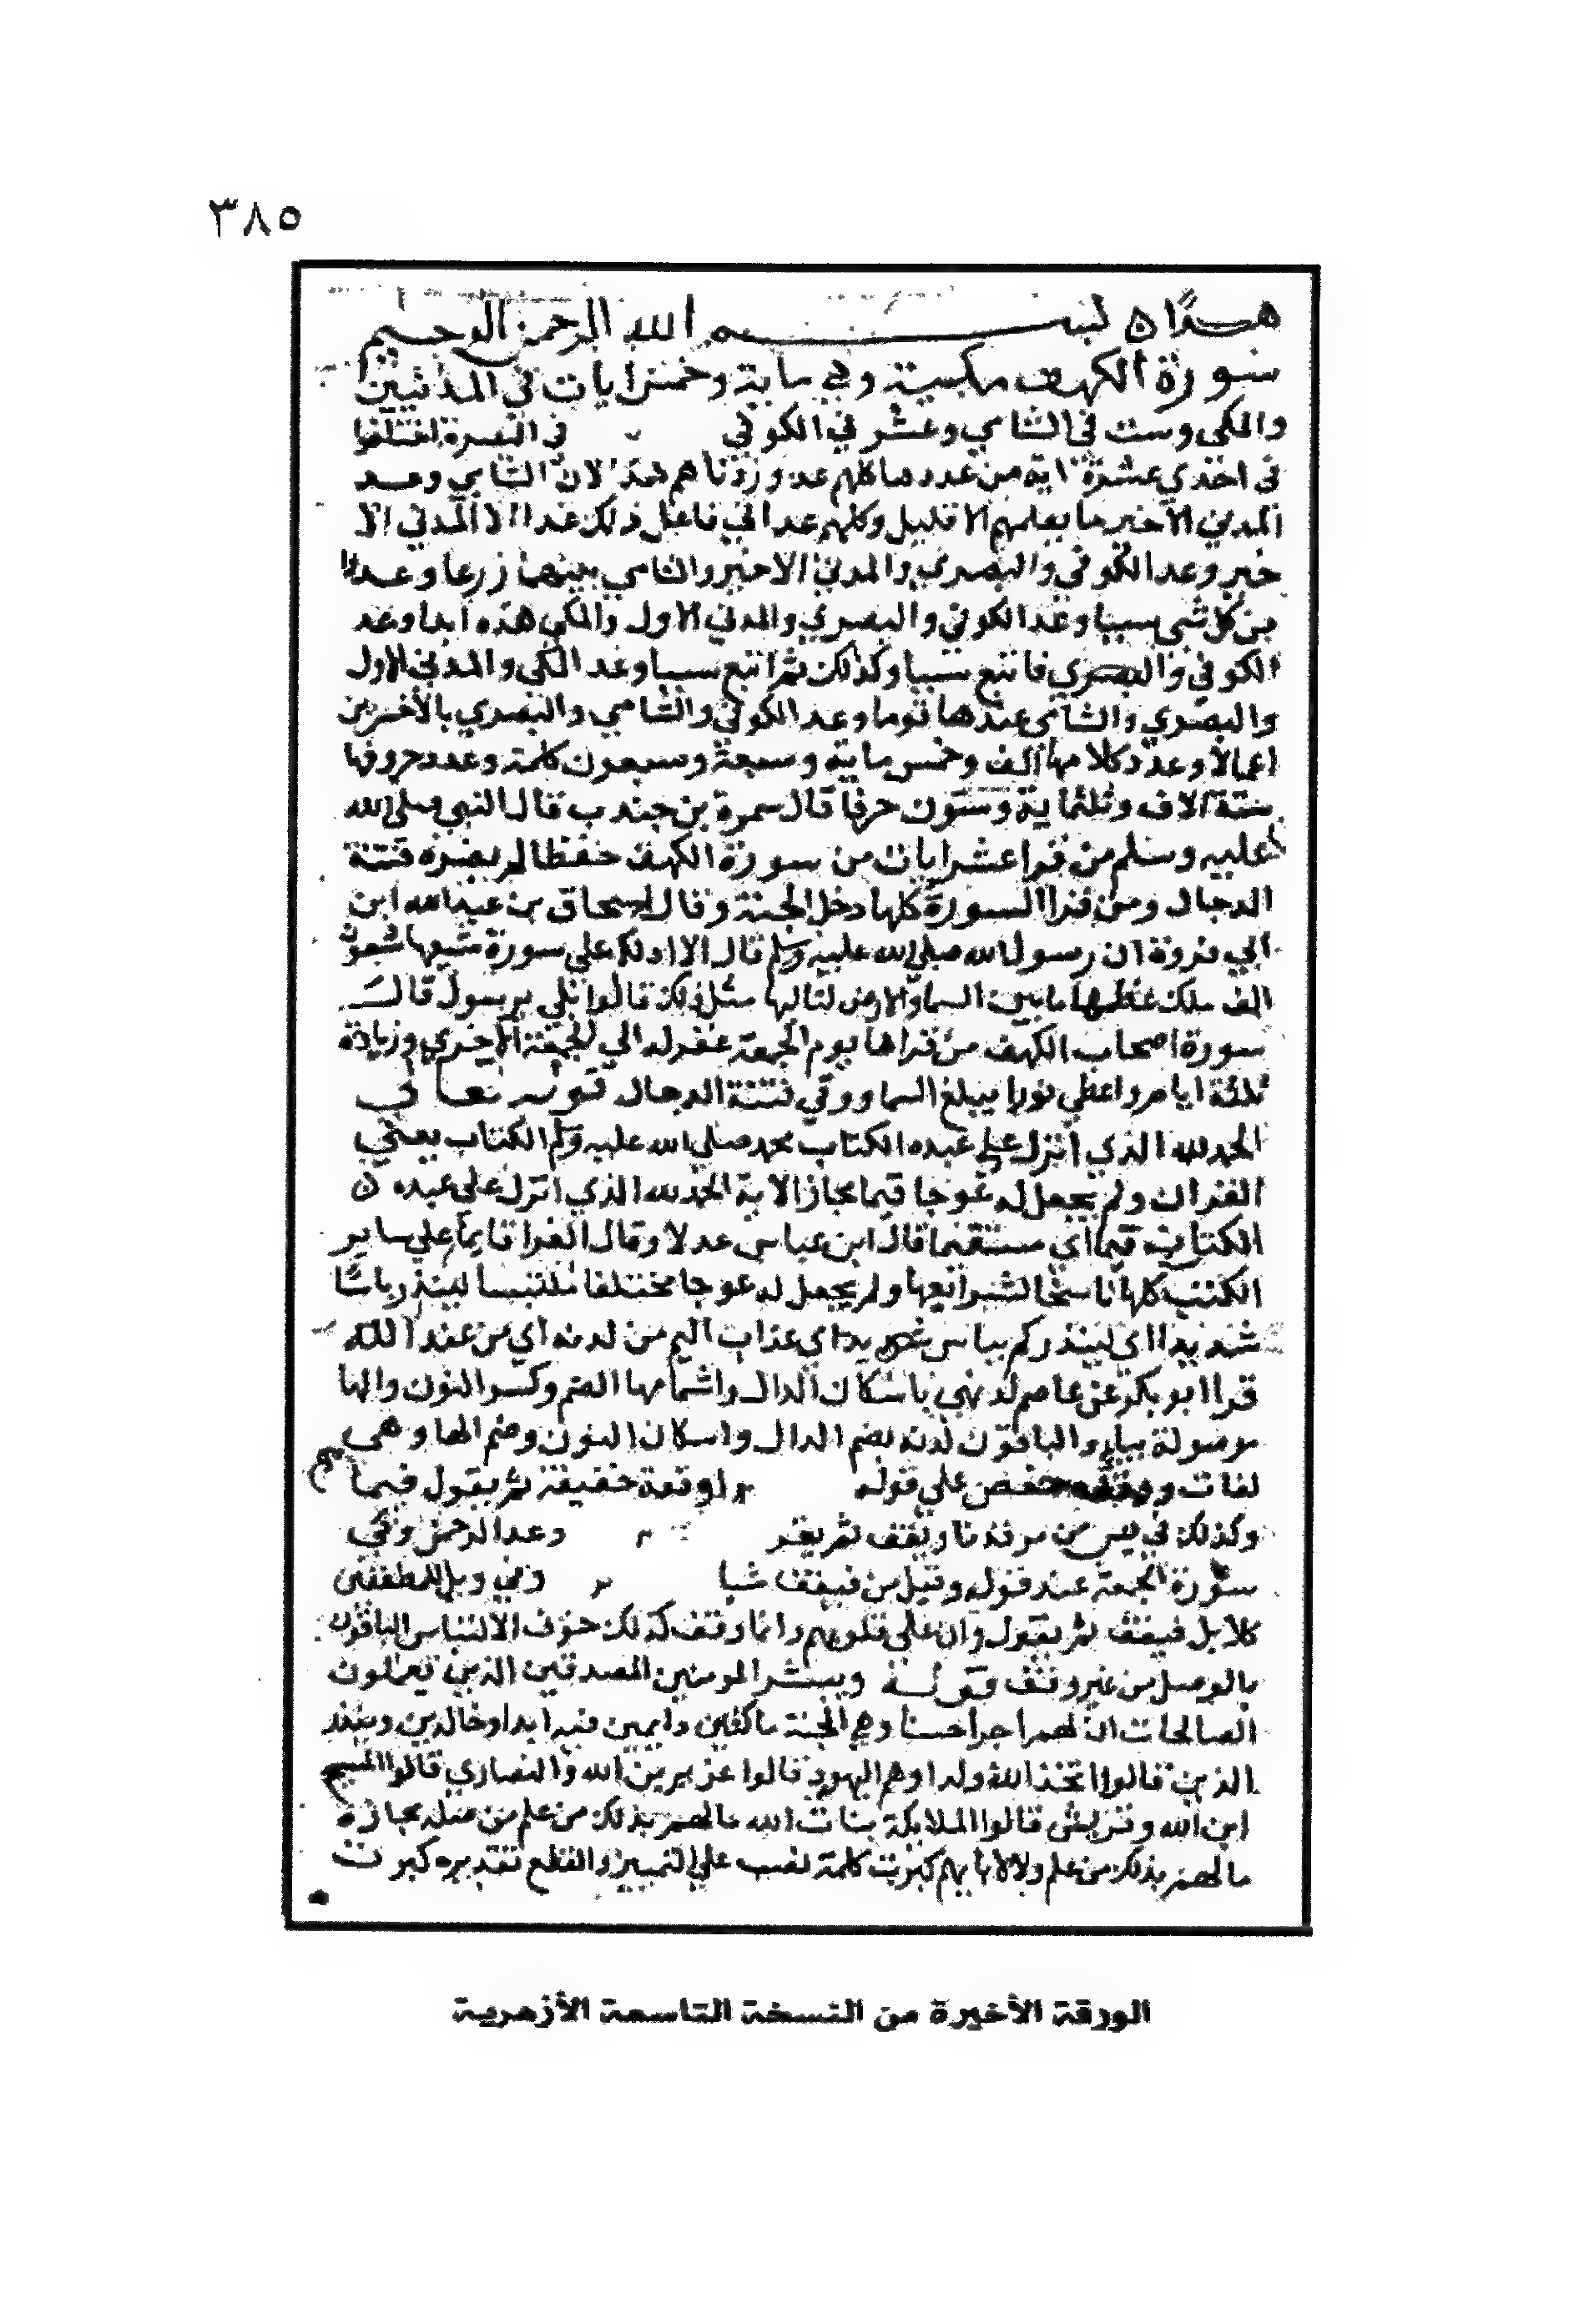 ٣٨٥
هذا ه بسم الله الرحمن الرحيم
سورة الكهف مكية وهي ماية وخمس ايات في المدنيين
والمكي وست في الشامي وعشر في الكوفي في البصرة اختلفوا
في احدي عشرة اية من عددها كلهم عد وزدناهم هدا الان الشامي وعد
المدني الاخير ما يعلمهم الا قليل وكلهم عد اني فاعل ذلك غدا الا المدني الا
خير وعد الكوفي والبصري والمدني الاخير والشامي بينهما زرعا وعدوا
من كل شي سببا وعد الكوفي والبصري والمدني الاول والمكي هذه ابدا وعد
الكوفي والبصري فاتبع سببا وكذلك ثم اتبع سببا وعد المكي والمدني الاول
والبصري والشامي عندها قوما وعد الكوفي والشامي والبصري بالأخسرين
اعمالا وعدد كلامها الف وخمس ماية وسبعة وسبعون كلمة وعدد حروفها
ستة الاف وثلثماية وستون حرفا قال سمرة بن جندب قال النبي صلي الله
عليه وسلم من قرا عشر ايات من سورة الكهف حفظا لم يضره فتنة
الدجال ومن قرا السورة كلها دخل الجنة وقال اسحاق بن عبد الله ابن
ابي فروة ان رسول الله صلي الله عليه وسلم قال الا ادلكم علي سورة شيعها سبعون
الف ملك عظمها ما بين السما والارض لتاليها مثل ذلك قالوا بلي يرسول قال
سورة اصحاب الكهف من قراها يوم الجمعة غفر له الي الجمعة الاخري وزيادة
ثلثة ايام واعطي نورا يبلغ السما ووقي فتنة الدجال قوله تعالي
الحمد لله الذي انزل علي عبده الكتاب محمد صلي الله عليه وسلم الكتاب يعني
القران ولم يجعل له عوجا قيما مجاز الاية الحمد لله الذي انزل علي عبده ه
الكتاب قيما اي مستقيما قال ابن عباس عدلا وقال الفرا قايما علي ساير
الكتب كلها ناسخا لشرايعها ولم يجعل له عوجا مختلفا ملتبسا لينذر باسا
شديدا اي لينذركم بباس شديد اي عذاب اليم من لدنه اي من عند الله
قرا ابو بكر عن عاصم لدنهي باسكان الدال واشمامها الضم وكسر النون والها
موصولة بياء والباقون لدنه بضم الدال واسكان النون وضم الها وهي
لغات ووقف حفص علي قوله وقفة خفيفة ثم يقول قيما
وكذلك في يس من مرقدنا ويقف ثم يقر وعد الرحمن وفي
سورة عند قوله وقيل من فيقف شيا وفي ويل للمطففين
كلا بل فيقف ثم يقول وان علي قلوبهم وانما وقف كذلك خوف الالتباس الباقون
بالوصل من غير وقف قوله ويبشر المومنين المصدقين الذين يعملون
الصالحات ان لهم اجرا حسنا وهي الجنة ماكثين دايمين فيه ابدا وخالدين وينذر
الذين قالوا اتخذ الله ولدا وهم اليهود قالوا عزير بن الله والنصاري قالوا المسيح
ابن الله وقريش قالوا الملايكة بنات الله ما لهم بذلك من علم من صله مجازه
ما لهم بذلك من علم ولا لابايهم كبرت كلمة نصب علي التمييز والقطع تقديره كبرت
الورقة الأخيرة من النسخة التاسعة الأزهرية